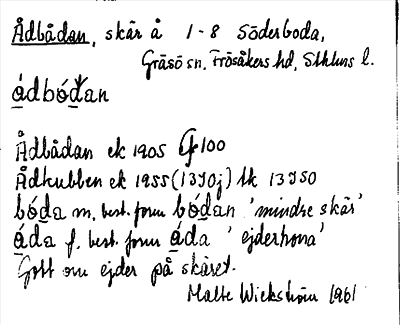 Ådbådan, skär å 1-8 Söderboda,
Gräsö sn, Frösåkers hd, Sthlms l.
ádbódan
Ådbådan ek 1905 100
Ådkubben ek 1955 (13I0j) tk 13I50
bóda m. best. form bódan 'mindre skär'
áda f. best. form áda 'ejderhona'
Gott om ejder på skäret.
Malte Wickström 1961